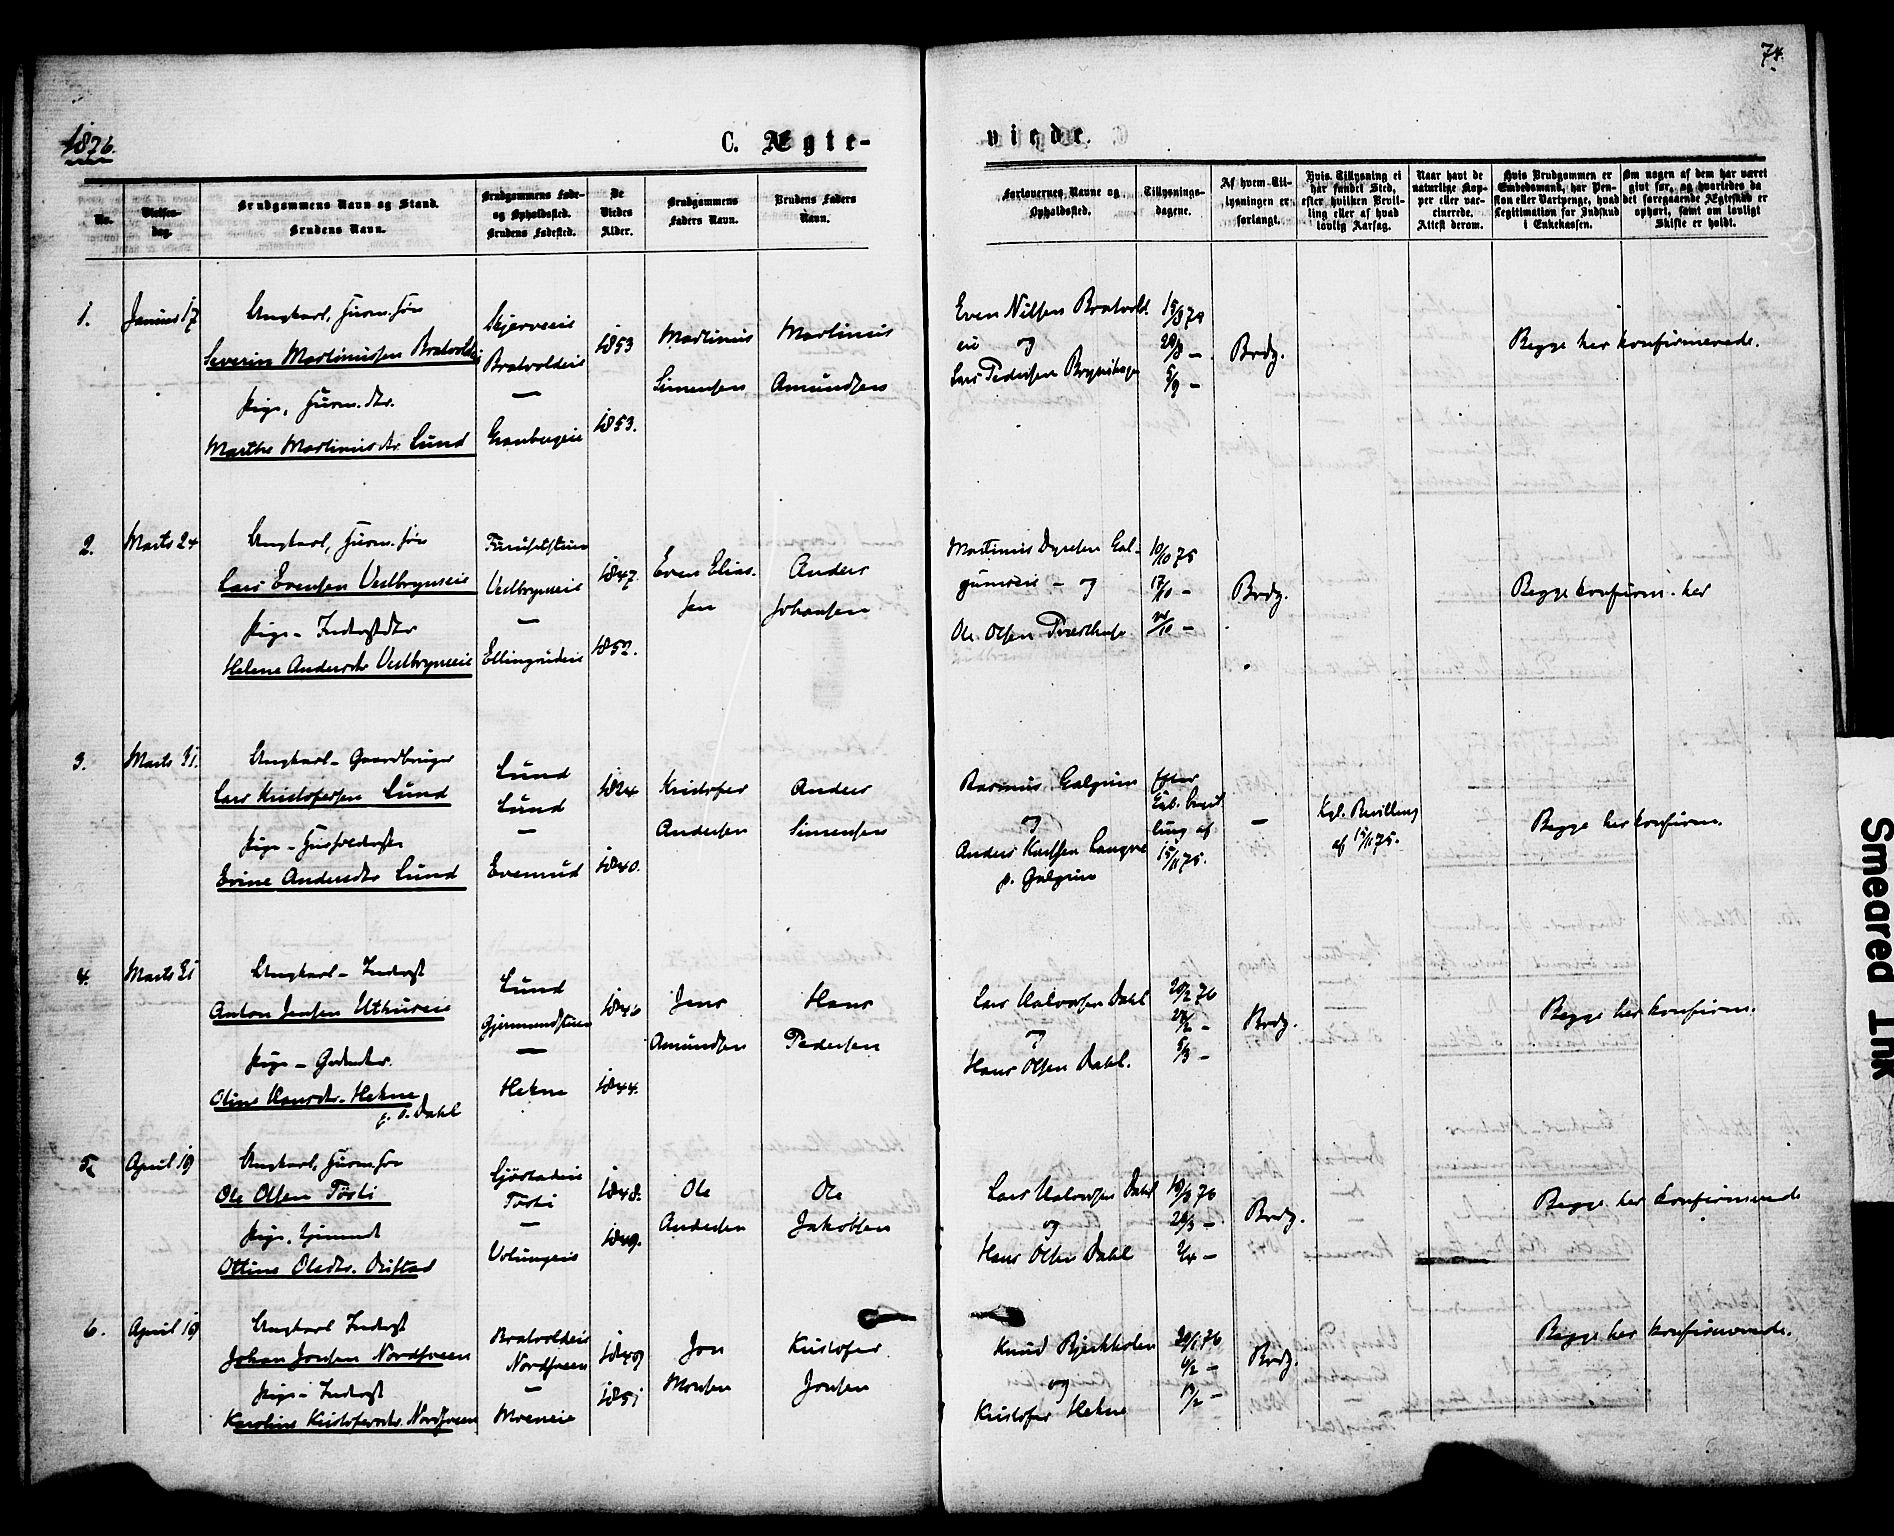 74.
1876.
C. Ægte-
viede.
No.
Vielses-
dag.
Brudgommens Navn og Stand.
Brudens Navn.
Brudgommens Føde-
og Opholdssted.
Brudens Fødested.
De
Viedes
Alder.
Brudgommens
Faders Navn.
Brudens Faders
Navn.
Forlovernes Navne og
Opholdssted.
Tillysnings-
dagene.
Af hvem Til-
lysningen er
forlangt.
Hvis Tillysning ei
har fundet Sted,
efter hvilken Bevil-
ling eller af hvad
lovlig Aarsag.
Naar havt de
naturlige Kop-
per eller vac-
cinerede.
Attest derom.
Hvis Brudgommen er
Embedsmand, har Pen-
sion eller Vartpenge, hvad
Legitimation for Indskud
i Enkekassen.
Om nogen af dem har været
gift før, og hvorledes da
det foregaaende Ægteskab er
ophørt, samt om lovligt
Skifte er holdt.
1.
Ungkarl, Husm. søn
Severin Martinussen Bratvoldei
Pige, Husm. dtr.
Marthe Martinusdtr. Lund
Bratvoldeie
—
1853
1853.
Martinus
Simensen
Martinus
Amundsen
Even Nilsen Bratvold-
eie og
Lars Pedersen
Brdg.
Begge her konfirmerede.
2.
Marts 24
Ungkarl, Husm. søn
Lars Evensen Vedbryneie
Pige - Inderstdtr
Helene Andersdtr Vedbryneie
Vedbryneie
—
1847.
1852.
Even Elias-
sen
Anders
Johansen
og
Ole Olsen
10/10 75
17/10 -
24/10 -
Brdg.
Begge konfirm. her
3.
Marts 31.
Ungkarl - Gaardbruger
Lars Kristofersen Lund
Evine Andersdtr Lund
Lund
Lund
—
Evenrud
1824
1840.
Kristofer
Andersen
Anders
Simensen
Rasmus Galgum
og
Anders Knutsen
p. Galgum
Efter
Kgl. bevil-
ling af
15/11 75.
—
Kgl. Bevilling
af 15/11 75.
Begge her konfirm.
4.
Marts 31
Ungkarl - Inderst
Anton Jensen
Pige - Grdmdtr.
Oline Hansdtr. Hekne
p. t. Dahl
Lund
—
Hekne
1846
1844.
Jens
Amundsen
Hans
Pedersen
Lars Halvorsen Dahl
og
Hans Olsen Dahl.
20/2 76
27/2 -
5/3 -
Brdg.
Begge her konfirm.
5.
April 19
Ungkarl, Husm. søn
Ole Olsen Tøsti
Ottine Olsdtr. Oustad
Tøsti
—
1848.
1849.
Ole
Andersen
Ole
Jakobsen
Lars Halvorsen Dahl
og
Hans Olsen Dahl
2/4 -
Brdg.
Begge her konfirmerede
6.
April 19
Ungkarl Inderst
Johan Jonsen Nordsveen
Pige - Inderst
Karoline Kristofersdtr. Nordsveen
Bratvoldeie
Nordsveen
—
Moeneie
1849
1851
Jon
Monsen
Kristofer
Jonsen
Knud Bjerkholen
og
Kristofer Hekne
30/1 76
6/2 -
13/2 -
Brdg.
Begge her konfirmerede.
Smeared Ink